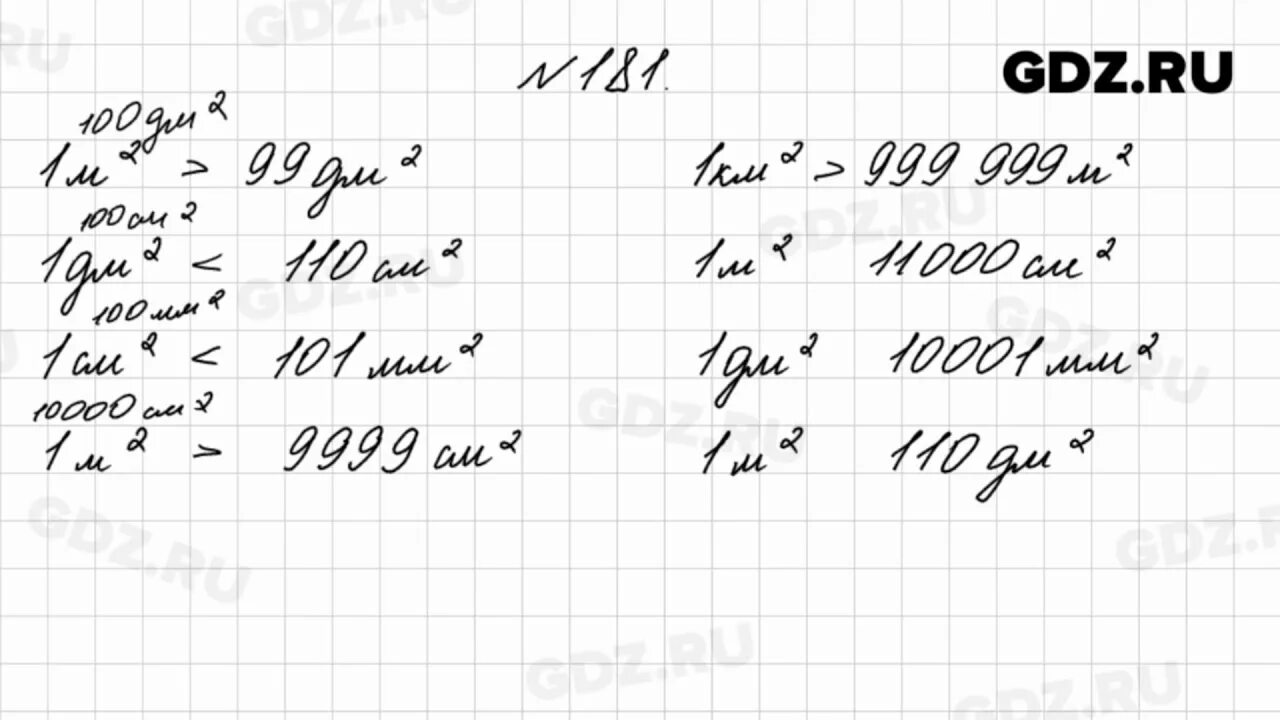 GDZ.RU
N181.
100дм²
1м² > 99дм²
100см²
1дм² < 110см²
100мм²
1см² < 101мм²
10000см²
1м² > 9999см²
1км² > 999 999м²
1м² 11000см²
1дм² 10001мм²
1м² 110дм²
GDZ.RU
GDZ.RU
GDZ.RU
GDZ.RU
GDZ.RU
GDZ.RU
GDZ.RU
GDZ.RU
GDZ.RU